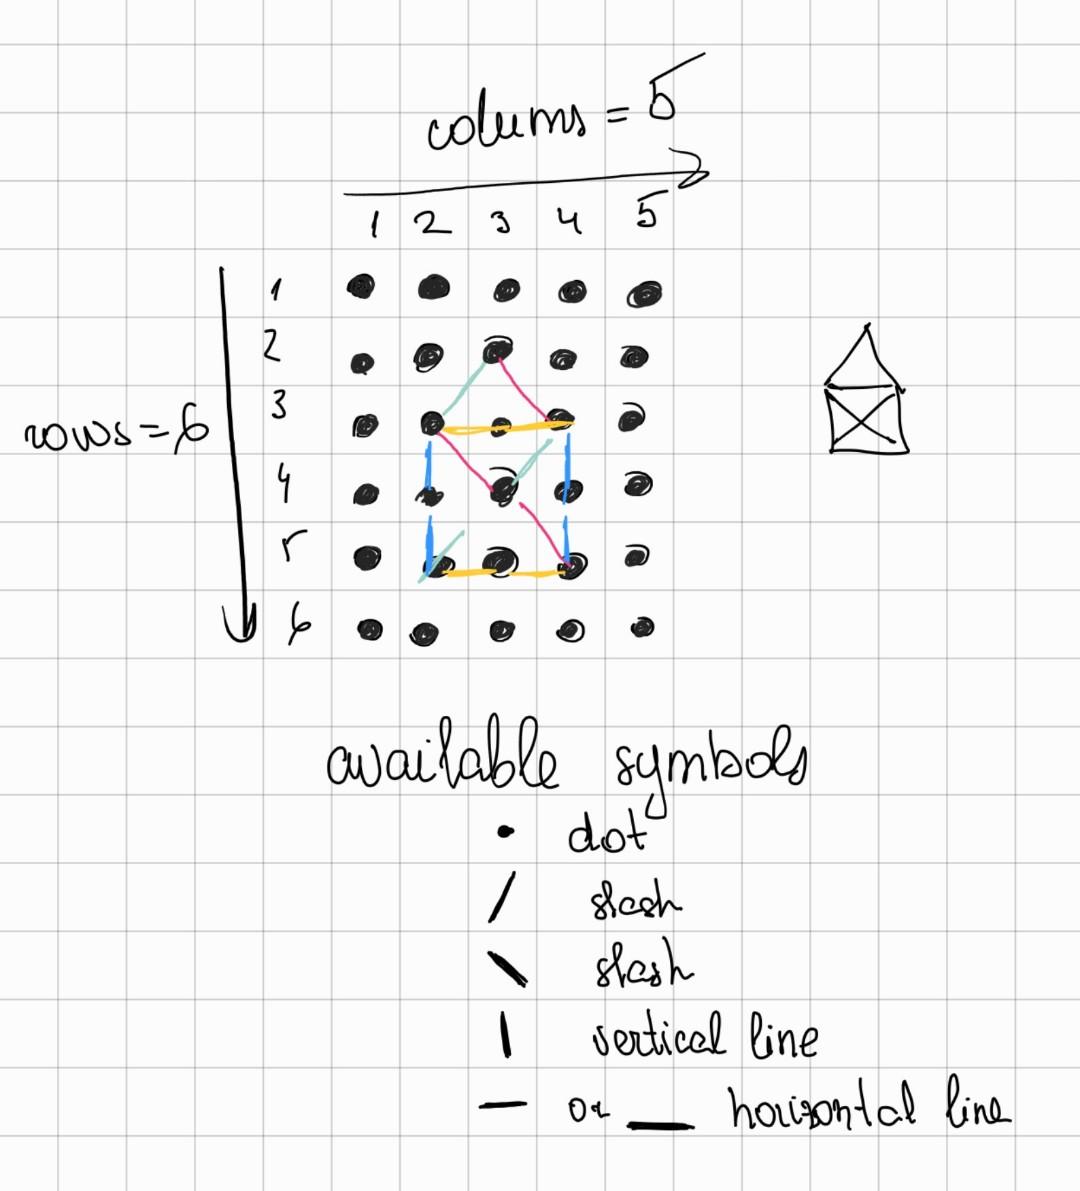 colums = 5
1 2 3 4 5
1
2
3
rows = 6
4
5
6
available symbols
dot
/ slash
\ slash
| vertical line
— or __ horizontal line